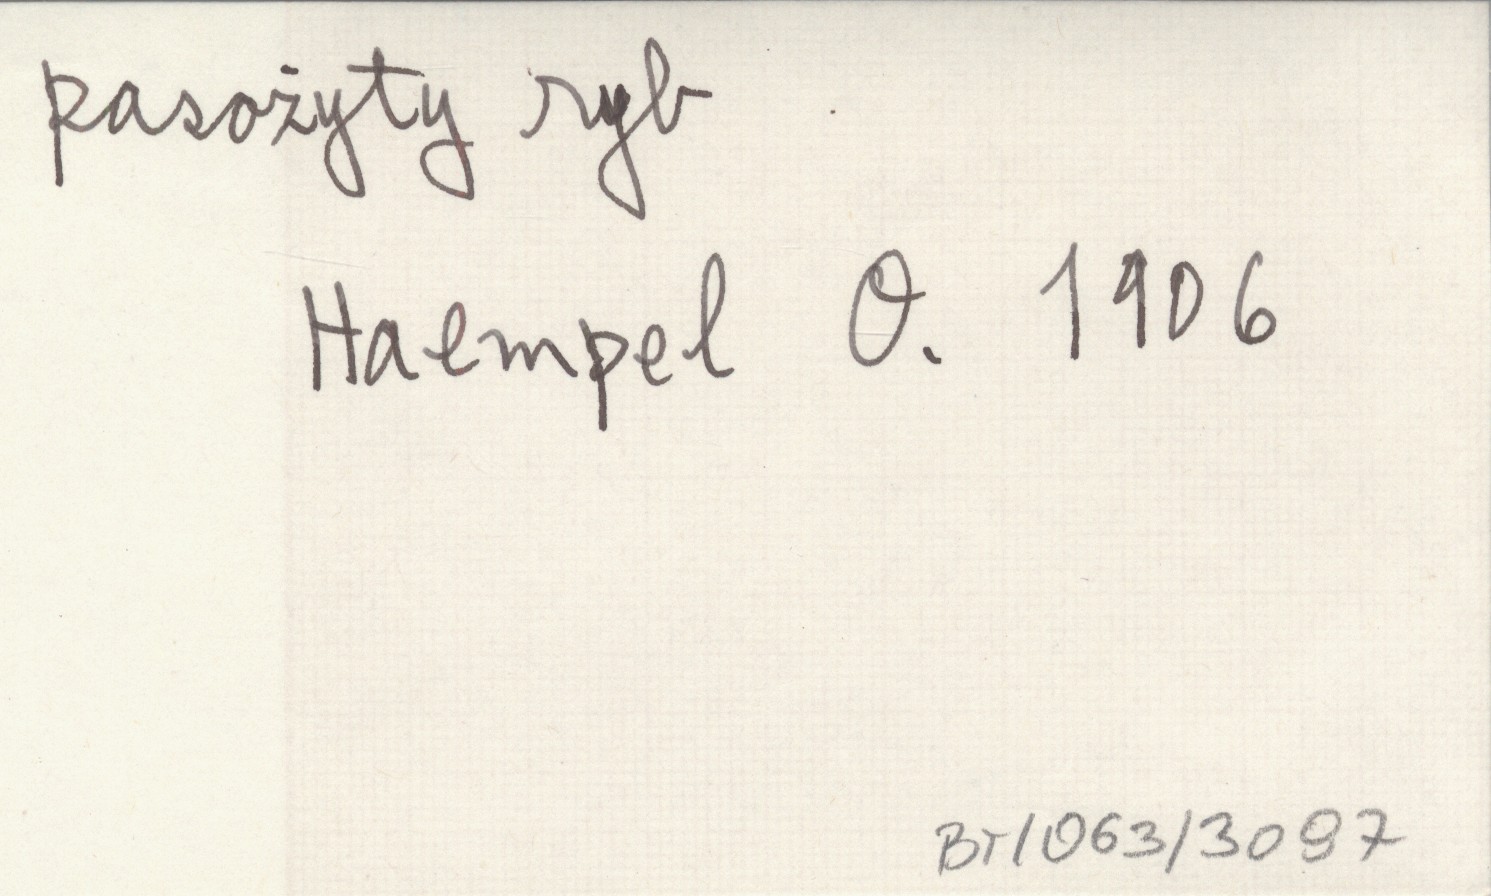 pasożyty ryb
Haempel O. 1906
Br/063/3097